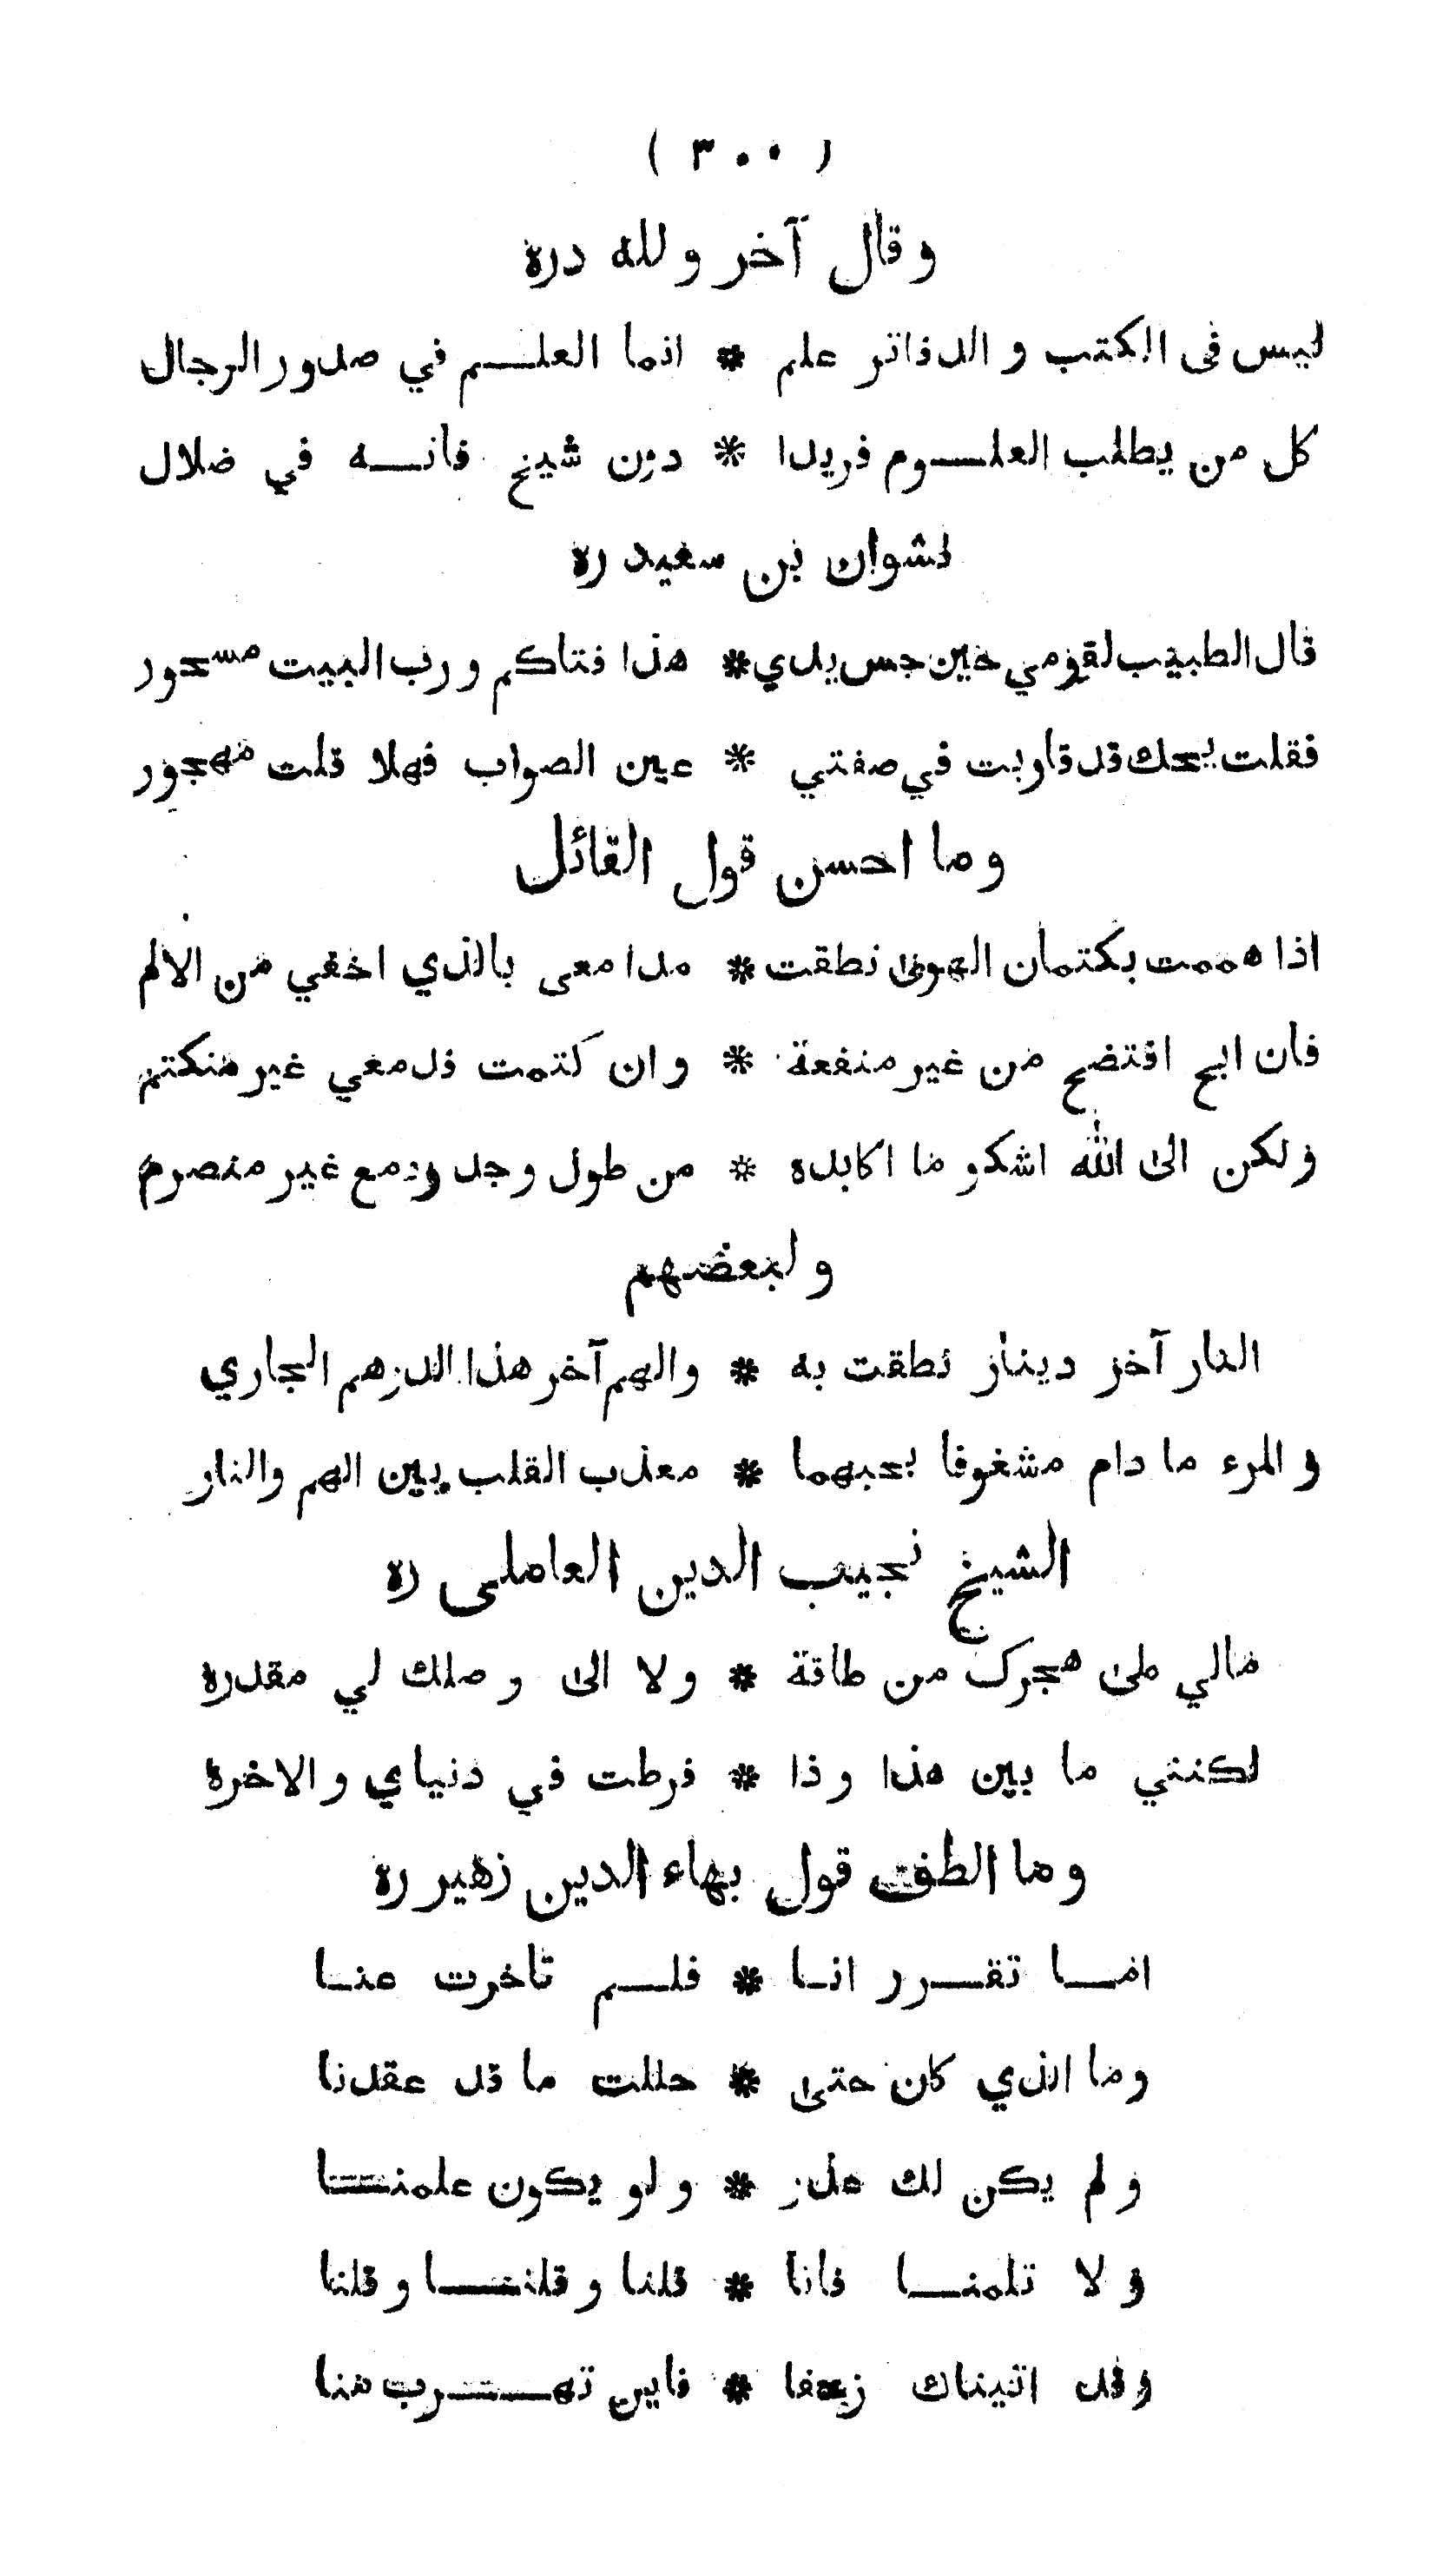 ( ٣٠٠ )
وقال آخر ولله دره
ليس فى الكتب و الدفاتر علم * انما العلــم في صدور الرجال
كل من يطلب العلــوم فريدا * دون شيخ فانــه في ضلال
نشوان بن سعيد ره
قال الطبيب لقومي حين جس يدي * هذا فتاكم و رب البيت مسحور
فقلت يحك قد قاربت في صفتي * عين الصواب فهلا قلت مهجور
وما احسن قول القائل
اذا هممت بكتمان الهوى نطقت * مدامعى بالذي اخفي من الالم
فان ابح افتضح من غير منفعة * وان كتمت فدمعي غير منكتم
ولكن الى الله اشكو ما اكابده * من طول وجد ودمع غير منصرم
ولبعضهم
النار آخر دينار نطقت به * والهم آخر هذا الدرهم الجاري
و المرء ما دام مشغوفا بحبهما * معذب القلب بين الهم والنار
الشيخ نجيب الدين العاملى ره
مالي على هجرك من طاقة * ولا الى وصلك لي مقدره
لكنني ما بين هذا وذا * فرطت في دنياي والاخرة
وما الطف قول بهاء الدين زهير ره
امــا تقــرر انــا * فلــم تاخرت عنــا
وما الذي كان حتى * حللت ما قد عقدنا
ولم يكن لك عذر * ولو يكون علمنــا
ولا تلمنــا فانا * قلنا وقلنــا وقلنا
وقد اتيناك زحفا * فاين تهــرب منا